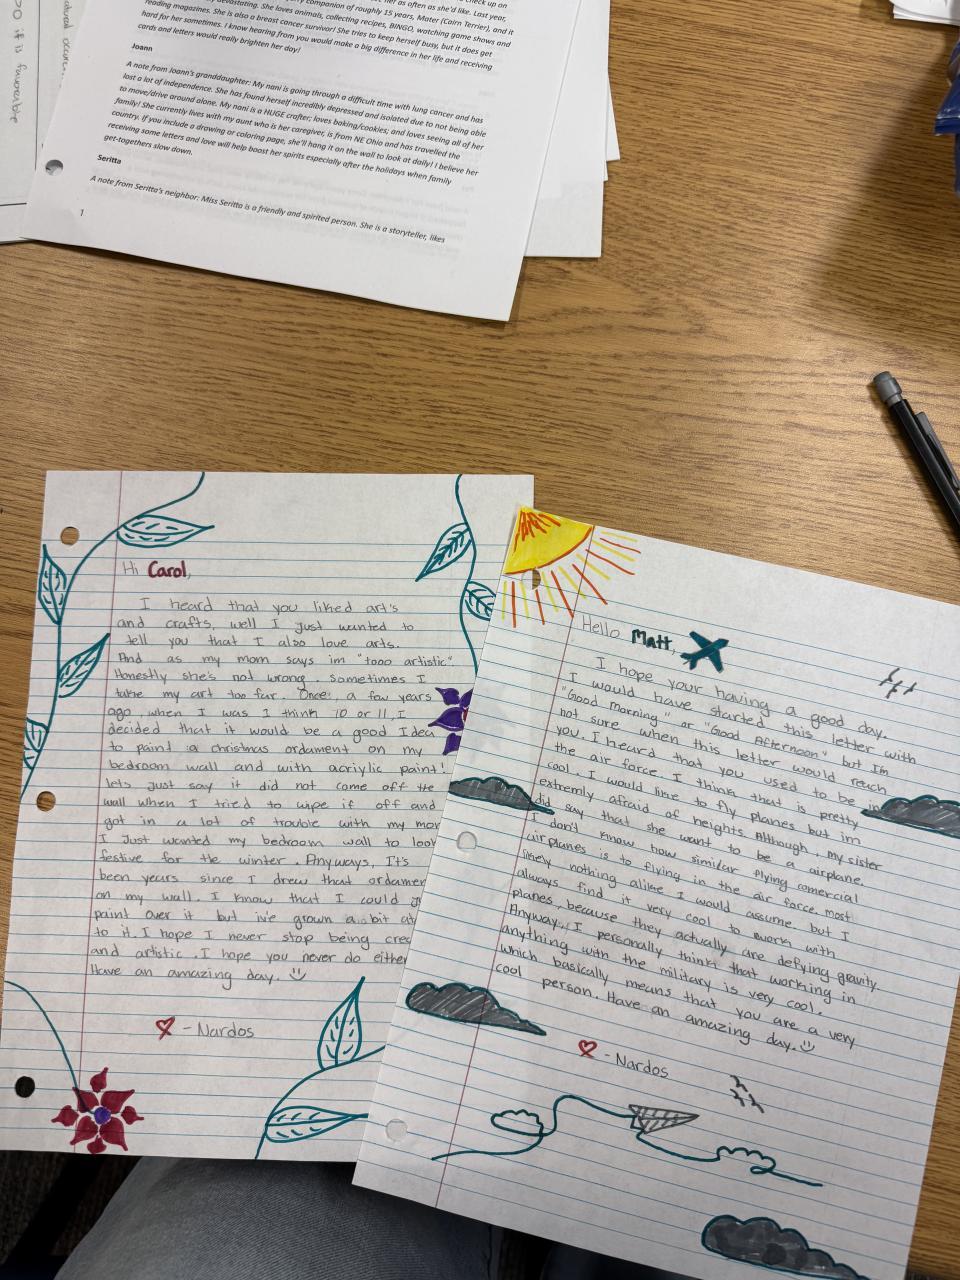 DO if is favorable
check up on
her as often as she'd like. Last year,
devastating. She loves animals, collecting recipes, BINGO, watching game shows and
companion of roughly 15 years, Mater (Cairn Terrier), and it
reading magazines. She is also a breast cancer survivor! She tries to keep herself busy, but it does get
hard for her sometimes. I know hearing from you would make a big difference in her life and receiving
cards and letters would really brighten her day!
Joann
A note from Joann's granddaughter: My nani is going through a difficult time with lung cancer and has
lost a lot of independence. She has found herself incredibly depressed and isolated due to not being able
to move/drive around alone. My nani is a HUGE crafter; loves baking/cookies; and loves seeing all of her
family! She currently lives with my aunt who is her caregiver, is from NE Ohio and has travelled the
country. If you include a drawing or coloring page, she'll hang it on the wall to look at daily! I believe her
receiving some letters and love will help boost her spirits especially after the holidays when family
get-togethers slow down.
Seritta
A note from Seritta's neighbor: Miss Seritta is a friendly and spirited person. She is a storyteller, likes
1
Hi Carol,
I heard that you liked art's
and crafts, well I just wanted to
tell you that I also love arts.
And as my mom says im "tooo artistic".
Honestly she's not wrong. Sometimes I
take my art too far. Once, a few years
ago, when I was I think 10 or 11, I
decided that it would be a good Idea
to paint a christmas ordament on my
bedroom wall and with acriylic paint!
lets just say it did not come off the
wall when I tried to wipe if off and
got in a lot of trouble with my mom
I Just wanted my bedroom wall to look
festive for the winter. Anyways, It's
been years since I drew that ordamen
on my wall. I know that I could
paint over it but iv'e grown a bit at
to it. I hope I never stop being crea
and artistic. I hope you never do either
Have an amazing day.
- Nardos
Hello Matt,
I hope your having a good day.
I would have started this letter with
"Good Morning" or "Good Afternoon" but Im
not sure when this letter would reach
you. I heard that you used to be in
the air force. I think that is pretty
cool. I would like to fly planes but im
extremly afraid of heights. Although, my sister
did say that she want to be a airplane.
I don't know how similar flying comercial
airplanes is to flying in the air force, most
likely nothing alike I would assume, but I
always find it very cool to work with
planes, because they actually are defying gravity.
Anyway, I personally think that working in
anything with the military is very cool.
which basically means that you are a very
cool person. Have an amazing day.
- Nardos